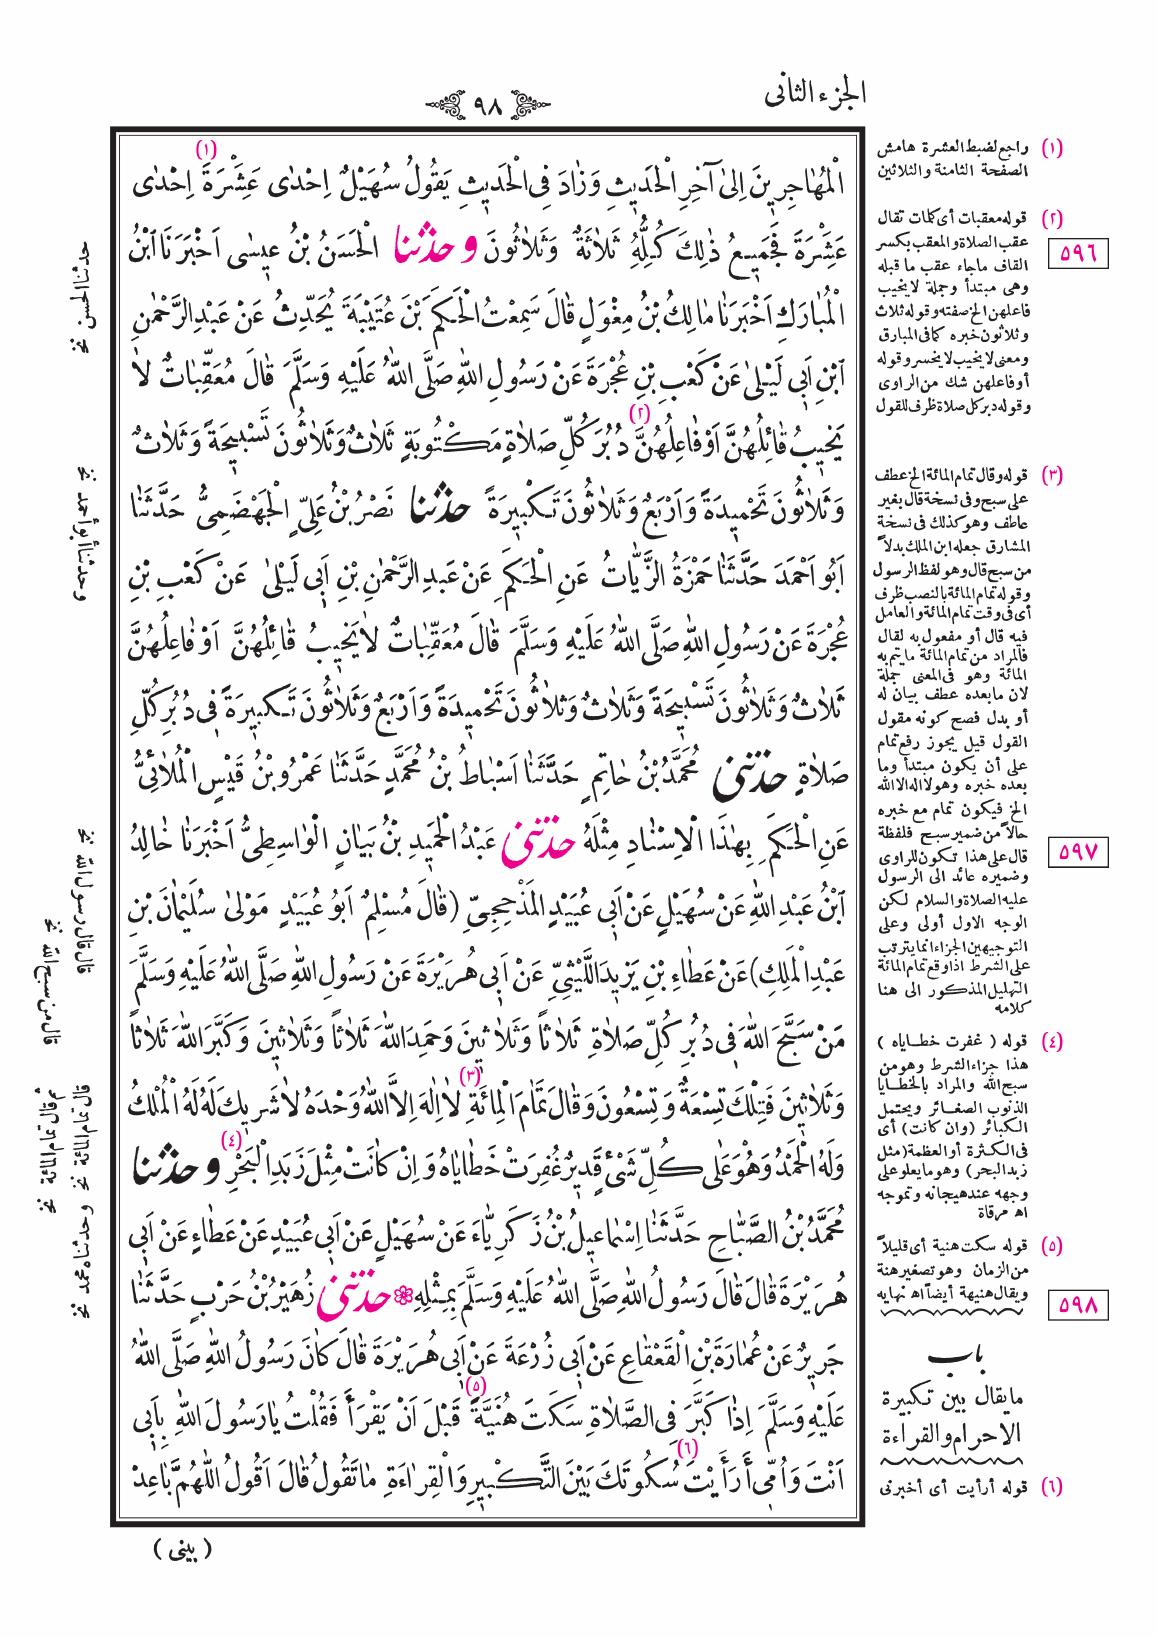 الجزء الثانى
٩٨
الْمُهَاجِرِينَ اِلىٰ آخِرِ الْحَدِيثِ وَزَادَ فِى الْحَدِيثِ يَقُولُ سُهَيْلٌ اِحْدٰى عَشْرَةَ اِحْدٰى (١)
عَشْرَةَ فَجَمِيعُ ذٰلِكَ كُلِّهِ ثَلَاثَةٌ وَثَلَاثُونَ وحدثنا الْحَسَنُ بْنُ عِيسٰى اَخْبَرَنَا ابْنُ
الْمُبَارَكِ اَخْبَرَنَا مَالِكُ بْنُ مِغْوَلٍ قَالَ سَمِعْتُ الْحَكَمَ بْنَ عُتَيْبَةَ يُحَدِّثُ عَنْ عَبْدِ الرَّحْمٰنِ
ابْنِ اَبِى لَيْلىٰ عَنْ كَعْبِ بْنِ عُجْرَةَ عَنْ رَسُولِ اللّٰهِ صَلَّى اللّٰهُ عَلَيْهِ وَسَلَّمَ قَالَ مُعَقِّبَاتٌ لَا
يَخِيبُ قَائِلُهُنَّ اَوْ فَاعِلُهُنَّ (٢) دُبُرَ كُلِّ صَلَاةٍ مَكْتُوبَةٍ ثَلَاثٌ وَثَلَاثُونَ تَسْبِيحَةً وَثَلَاثٌ
وَثَلَاثُونَ تَحْمِيدَةً وَاَرْبَعٌ وَثَلَاثُونَ تَكْبِيرَةً حدثنا نَصْرُ بْنُ عَلِىٍّ الْجَهْضَمِىُّ حَدَّثَنَا
اَبُو اَحْمَدَ حَدَّثَنَا حَمْزَةُ الزَّيَّاتُ عَنِ الْحَكَمِ عَنْ عَبْدِ الرَّحْمٰنِ بْنِ اَبِى لَيْلىٰ عَنْ كَعْبِ بْنِ
عُجْرَةَ عَنْ رَسُولِ اللّٰهِ صَلَّى اللّٰهُ عَلَيْهِ وَسَلَّمَ قَالَ مُعَقِّبَاتٌ لَا يَخِيبُ قَائِلُهُنَّ اَوْ فَاعِلُهُنَّ
ثَلَاثٌ وَثَلَاثُونَ تَسْبِيحَةً وَثَلَاثٌ وَثَلَاثُونَ تَحْمِيدَةً وَاَرْبَعٌ وَثَلَاثُونَ تَكْبِيرَةً فِى دُبُرِ كُلِّ
صَلَاةٍ حدثنى مُحَمَّدُ بْنُ حَاتِمٍ حَدَّثَنَا اَسْبَاطُ بْنُ مُحَمَّدٍ حَدَّثَنَا عَمْرُو بْنُ قَيْسٍ الْمُلَائِىُّ
عَنِ الْحَكَمِ بِهٰذَا الْاِسْنَادِ مِثْلَهُ حدثنى عَبْدُ الْحَمِيدِ بْنُ بَيَانٍ الْوَاسِطِىُّ اَخْبَرَنَا خَالِدُ
ابْنُ عَبْدِ اللّٰهِ عَنْ سُهَيْلٍ عَنْ اَبِى عُبَيْدٍ الْمَذْحِجِىِّ (قَالَ مُسْلِمٌ اَبُو عُبَيْدٍ مَوْلىٰ سُلَيْمَانَ بْنِ
عَبْدِ الْمَلِكِ) عَنْ عَطَاءِ بْنِ يَزِيدَ اللَّيْثِىِّ عَنْ اَبِى هُرَيْرَةَ عَنْ رَسُولِ اللّٰهِ صَلَّى اللّٰهُ عَلَيْهِ وَسَلَّمَ
مَنْ سَبَّحَ اللّٰهَ فِى دُبُرِ كُلِّ صَلَاةٍ ثَلَاثاً وَثَلَاثِينَ وَحَمِدَ اللّٰهَ ثَلَاثاً وَثَلَاثِينَ وَكَبَّرَ اللّٰهَ ثَلَاثاً
وَثَلَاثِينَ فَتِلْكَ تِسْعَةٌ وَتِسْعُونَ وَقَالَ تَمَامَ الْمِائَةِ (٣) لَا اِلٰهَ اِلَّا اللّٰهُ وَحْدَهُ لَا شَرِيكَ لَهُ لَهُ الْمُلْكُ
وَلَهُ الْحَمْدُ وَهُوَ عَلىٰ كُلِّ شَىْءٍ قَدِيرٌ غُفِرَتْ خَطَايَاهُ وَاِنْ كَانَتْ مِثْلَ زَبَدِ الْبَحْرِ (٤) وحدثنا
مُحَمَّدُ بْنُ الصَّبَّاحِ حَدَّثَنَا اِسْمَاعِيلُ بْنُ زَكَرِيَّاءَ عَنْ سُهَيْلٍ عَنْ اَبِى عُبَيْدٍ عَنْ عَطَاءٍ عَنْ اَبِى
هُرَيْرَةَ قَالَ قَالَ رَسُولُ اللّٰهِ صَلَّى اللّٰهُ عَلَيْهِ وَسَلَّمَ بِمِثْلِهِ ❁ حدثنى زُهَيْرُ بْنُ حَرْبٍ حَدَّثَنَا
جَرِيرٌ عَنْ عُمَارَةَ بْنِ الْقَعْقَاعِ عَنْ اَبِى زُرْعَةَ عَنْ اَبِى هُرَيْرَةَ قَالَ كَانَ رَسُولُ اللّٰهِ صَلَّى اللّٰهُ
عَلَيْهِ وَسَلَّمَ اِذَا كَبَّرَ فِى الصَّلَاةِ سَكَتَ هُنَيَّةً (٥) قَبْلَ اَنْ يَقْرَأَ فَقُلْتُ يَا رَسُولَ اللّٰهِ بِاَبِى
اَنْتَ وَاُمِّى أَرَأَيْتَ (٦) سُكُوتَكَ بَيْنَ التَّكْبِيرِ وَالْقِرَاءَةِ مَا تَقُولُ قَالَ اَقُولُ اللّٰهُمَّ بَاعِدْ
( بينى )
(١) راجع لضبط العشرة هامش
الصفحة الثامنة والثلاثين
(٢) قوله معقبات أى كلمات تقال
٥٩٦
عقب الصلاة والمعقب بكسر
القاف ماجاء عقب ما قبله
وهى مبتدأ وجملة لايخيب
فاعلهن الخ صفته وقوله ثلاث
وثلاثون خبره كما فى المبارق
ومعنى لايخيب لايخسر وقوله
أو فاعلهن شك من الراوى
وقوله دبر كل صلاة ظرف للقول
(٣) قوله وقال تمام المائة الخ عطف
على سبح وفى نسخة قال بغير
عاطف وهو كذلك فى نسخة
المشارق جعله ابن الملك بدلاً
من سبح قال وهو لفظ الرسول
وقوله تمام المائة بالنصب ظرف
أى فى وقت تمام المائة والعامل
فيه قال أو مفعول به لقال
فالمراد من تمام المائة مايتم به
المائة وهو فى المعنى جملة
لان مابعده عطف بيان له
أو بدل فصح كونه مقول
القول قيل يجوز رفع تمام
على أن يكون مبتدأ وما
بعده خبره وهو لااله الا الله
الخ فيكون تمام مع خبره
حالاً من ضمير سبح فلفظة
٥٩٧
قال على هذا تكون للراوى
وضميره عائد الى الرسول
عليه الصلاة والسلام لكن
الوجه الاول أولى وعلى
التوجيهين الجزاء انما يترتب
على الشرط اذا وقع تمام المائة
التهليل المذكور الى هنا
كلامه
(٤) قوله ( غفرت خطاياه )
هذا جزاء الشرط وهو من
سبح الله والمراد بالخطايا
الذنوب الصغائر ويحتمل
الكبائر (وان كانت) أى
فى الكثرة أو العظمة (مثل
زبد البحر) وهو ما يعلو على
وجهه عند هيجانه وتموجه
اه مرقاة
(٥) قوله سكت هنية أى قليلاً
من الزمان وهو تصغير هنة
ويقال هنيهة أيضاً اه نهايه
٥٩٨
باب
مايقال بين تكبيرة
الاحرام والقراءة
(٦) قوله أرأيت أى أخبرنى
حدثنا الحسن نخ
وحدثنا أبو أحمد نخ
قال قال رسول الله نخ
قال من سبح الله نخ
قال تمام المائة نخ وحدثناه محمد نخ